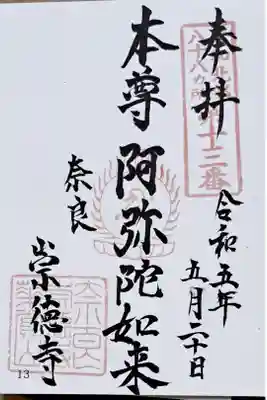 奉拝
八十八ヶ所
十三番
令和五年
五月二十日
本尊 阿弥陀如来
奈良
崇徳寺
13